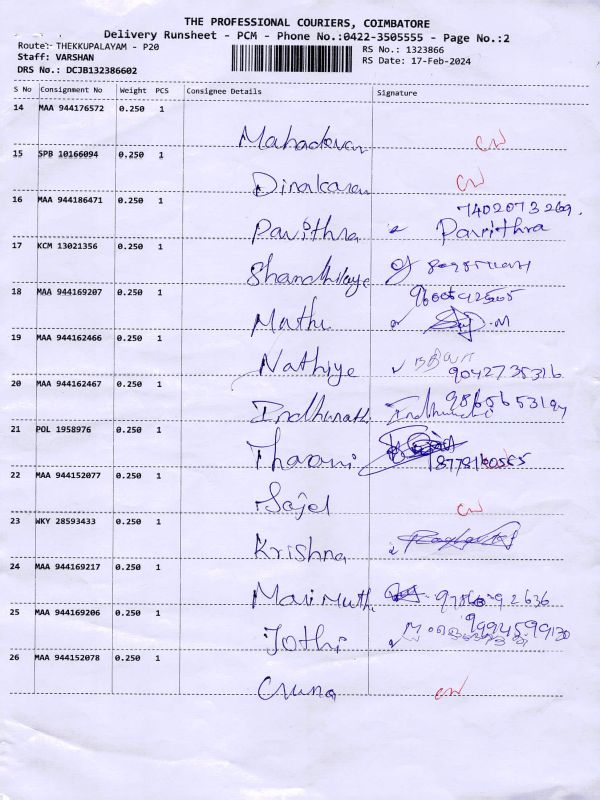 THE PROFESSIONAL COURIERS, COIMBATORE
Delivery Runsheet - PCM - Phone No.:0422-3505555 - Page No.:2
Route: THEKKUPALAYAM - P20
RS No.: 1323866
Staff: VARSHAN
RS Date: 17-Feb-2024
DRS No.: DCJB132386602
S No Consignment No Weight PCS Consignee Details Signature
14 MAA 944176572 0.250 1
Mahadevan
15 SPB 10166094 0.250 1
Dinakaran
16 MAA 944186471 0.250 1
7402073269.
Pavithra Pavithra
17 KCM 13021356 0.250 1
18 MAA 944169207 0.250 1
Mathi
19 MAA 944162466 0.250 1
Nathiye நதியா
9042735316
20 MAA 944162467 0.250 1
21 POL 1958976 0.250 1
Tharani
22 MAA 944152077 0.250 1
Sajel
23 WKY 28593433 0.250 1
Krishna
24 MAA 944169217 0.250 1
Marimuth
25 MAA 944169206 0.250 1
9994599130
Jothi
26 MAA 944152078 0.250 1